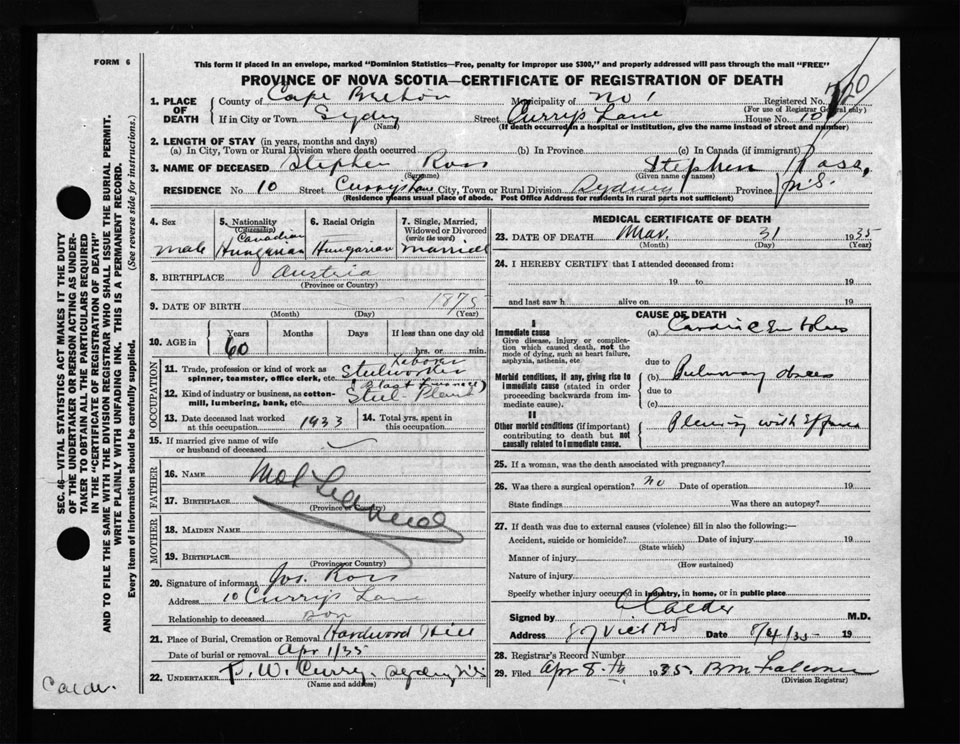 FORM 6
This form if placed in an envelope, marked "Dominion Statistics—Free, penalty for improper use $300," and properly addressed will pass through the mail "FREE"
PROVINCE OF NOVA SCOTIA—CERTIFICATE OF REGISTRATION OF DEATH
1. PLACE OF DEATH
County of Cape Breton Municipality of No 1 Registered No.
(For use of Registrar General only)
If in City or Town Sydney Street Currys Lane House No. 10
(Name) (If death occurred in a hospital or institution, give the name instead of street and number)
2. LENGTH OF STAY (in years, months and days)
(a) In City, Town or Rural Division where death occurred (b) In Province (c) In Canada (if immigrant)
3. NAME OF DECEASED Stephen Ross Stephen Ross,
(Surname) (Given name or names)
RESIDENCE No. 10 Street Currys Lane City, Town or Rural Division Sydney Province N.S.
(Residence means usual place of abode. Post Office Address for residents in rural parts not sufficient)
4. Sex
male
5. Nationality
(Citizenship)
Canadian
Hungarian
6. Racial Origin
Hungarian
7. Single, Married, Widowed or Divorced
(write the word)
married
8. BIRTHPLACE Austria
(Province or Country)
9. DATE OF BIRTH 1875
(Month) (Day) (Year)
10. AGE in
Years Months Days If less than one day old
60 hrs. or min.
OCCUPATION
11. Trade, profession or kind of work as spinner, teamster, office clerk, etc. Steelworker Laborer
12. Kind of industry or business, as cotton-mill, lumbering, bank, etc. (Blast Furnace) Steel Plant
13. Date deceased last worked at this occupation 1933
14. Total yrs. spent in this occupation
15. If married give name of wife or husband of deceased
FATHER
16. NAME
17. BIRTHPLACE
(Province or Country)
MOTHER
18. MAIDEN NAME
19. BIRTHPLACE
(Province or Country)
20. Signature of informant Jos. Ross
Address 10 Currys Lane
Relationship to deceased son
21. Place of Burial, Cremation or Removal Hardwood Hill
Date of burial or removal Apr 1/35
22. UNDERTAKER F. W. Curry Sydney N.S.
(Name and address)
MEDICAL CERTIFICATE OF DEATH
23. DATE OF DEATH Mar. 31 1935
(Month) (Day) (Year)
24. I HEREBY CERTIFY that I attended deceased from:
19 to 19
and last saw h alive on 19
CAUSE OF DEATH
I
Immediate cause
Give disease, injury or complication which caused death, not the mode of dying, such as heart failure, asphyxia, asthenia, etc.
(a) Cardiac Embolus
due to
Morbid conditions, if any, giving rise to immediate cause (stated in order proceeding backwards from immediate cause).
(b) Pulmonary
due to
(c)
II
Other morbid conditions (if important) contributing to death but not causally related to immediate cause.
Pleurisy with Effusion
25. If a woman, was the death associated with pregnancy?
26. Was there a surgical operation? no Date of operation 19
State findings Was there an autopsy?
27. If death was due to external causes (violence) fill in also the following:—
Accident, suicide or homicide? Date of injury 19
(State which)
Manner of injury
(How sustained)
Nature of injury
Specify whether injury occurred in industry, in home, or in public place
Signed by Calder M.D.
Address Vict Rd Date 8/4/35 19
28. Registrar's Record Number
29. Filed Apr 8th 1935 B M Falconer
(Division Registrar)
SEC. 46—VITAL STATISTICS ACT MAKES IT THE DUTY
OF THE UNDERTAKER OR PERSON ACTING AS UNDER-
TAKER TO OBTAIN ALL THE PARTICULARS REQUIRED
IN THE "CERTIFICATE OF REGISTRATION OF DEATH"
AND TO FILE THE SAME WITH THE DIVISION REGISTRAR WHO SHALL ISSUE THE BURIAL PERMIT.
WRITE PLAINLY WITH UNFADING INK. THIS IS A PERMANENT RECORD.
Every item of information should be carefully supplied. (See reverse side for instructions.)
Calder.